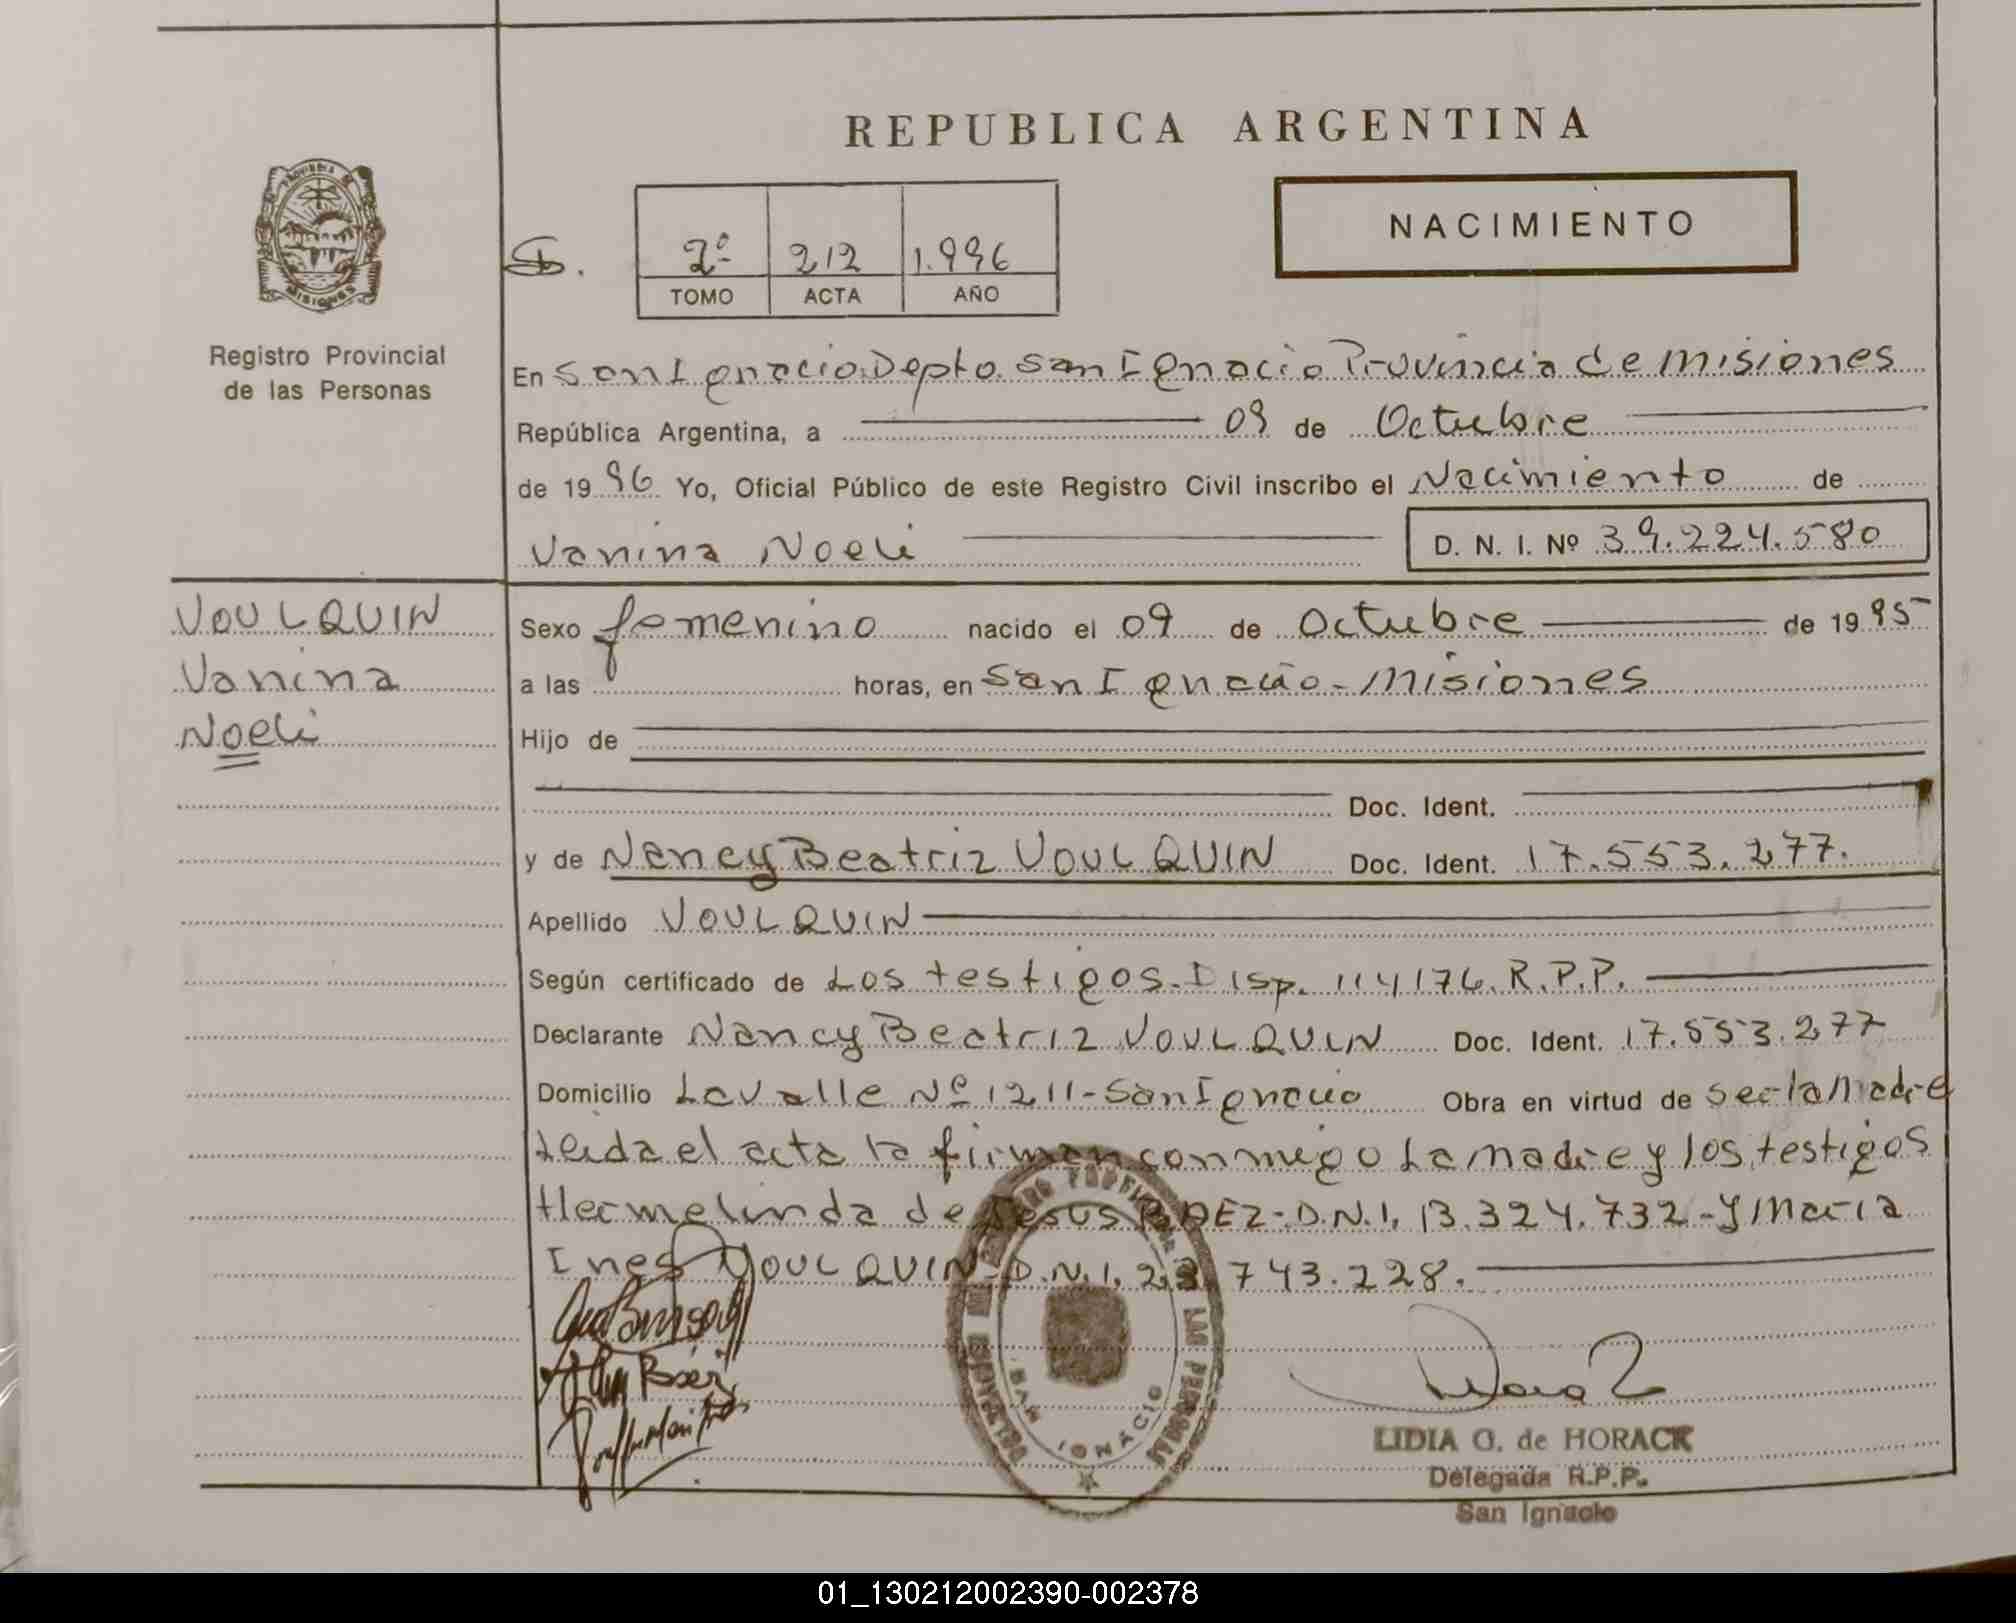 REPUBLICA ARGENTINA
PROVINCIA DE
MISIONES
Registro Provincial
de las Personas
NACIMIENTO
2º 212 1.996
TOMO ACTA AÑO
En San Ignacio Depto. San Ignacio Provincia de Misiones
República Argentina, a 09 de Octubre
de 19 96 Yo, Oficial Público de este Registro Civil inscribo el Nacimiento de
Vanina Noeli D. N. I. Nº 39.224.580
VOULQUIN
Vanina
Noeli
Sexo femenino nacido el 09 de Octubre de 19 95
a las horas, en San Ignacio - Misiones
Hijo de
Doc. Ident.
y de Nancy Beatriz VOULQUIN Doc. Ident. 17.553.277.
Apellido VOULQUIN
Según certificado de Los testigos. Disp. 114/76. R.P.P.
Declarante Nancy Beatriz VOULQUIN Doc. Ident. 17.553.277
Domicilio Lavalle Nº 1211 - San Ignacio Obra en virtud de ser la Madre
Leida el acta la firman conmigo La Madre y los testigos
Hermelinda de Jesus BAEZ - D.N.I. 13.324.732 - y Maria
Ines VOULQUIN - D.N.I. 23.743.228.
Báez
SAN IGNACIO
LAS PERSONAS
LIDIA G. de HORACK
Delegada R.P.P.
San Ignacio
01_130212002390-002378